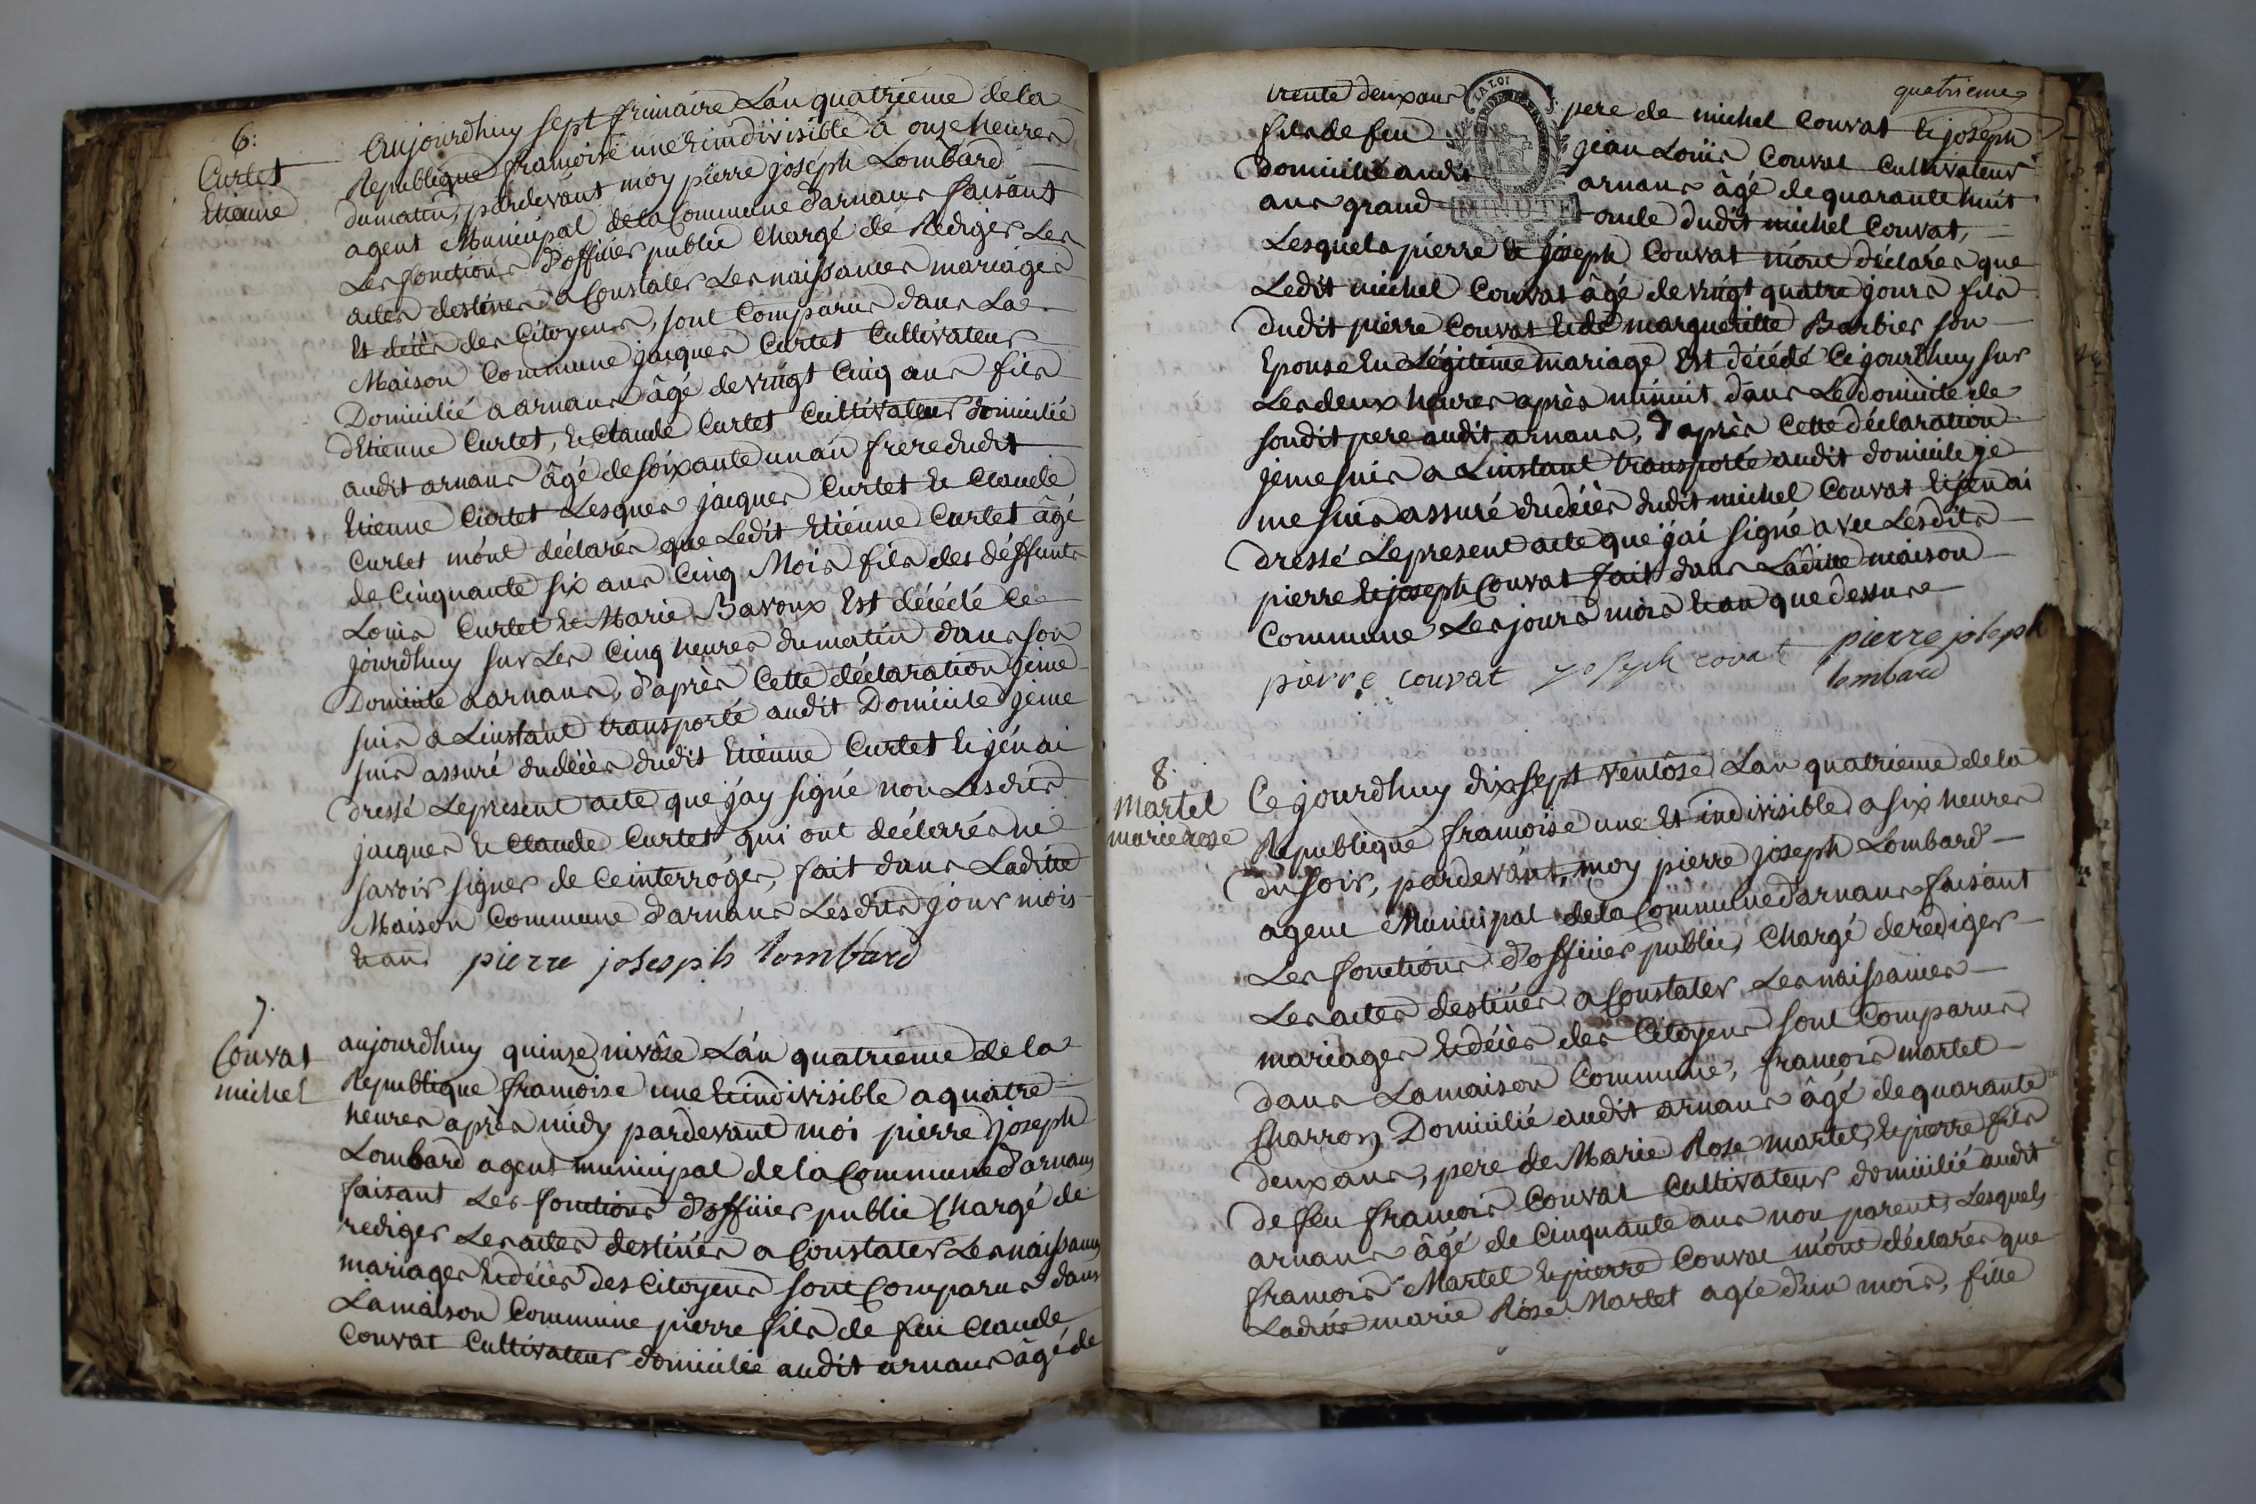 6.
Curtet
Etienne
Aujourdhuy sept frimaire Lan quatriéme de la
Republique francoise une & indivisible à onze heures
du matin, pardevant moy pierre joseph Lombard
agent Municipal de la Commune d'arnans faisant
Les fonctions d'officier public Chargé de Rediger Les
actes destinés a Constater Les naissances mariages
Et décès des Citoyens, sont Comparus dans La
Maison Commune jacques Curtet Cultivateur
Domicilié a arnans âgé de vingt Cinq ans fils
d'Etienne Curtet, & Claude Curtet Cultivateur domicilié
audit arnans âgé de soixante un an frere dudit
Etienne Curtet Lesques jacques Curtet & Claude
Curtet m'ont déclarés que Ledit Etiénne Curtet âgé
de Cinquante six ans Cinq Mois fils des déffunts
Louis Curtet & Marie Bavoux Est décédé Ce
jourdhuy sur Les Cinq heures du matin dans son
Domicile a arnans, d'après Cette déclaration jeme
suis a Linstant transporté audit Domicile jeme
suis assuré du décès dudit Etienne Curtet & jén ai
dressé Lepresent acte que j'ay signé non Lesdits
jacques & Claude Curtet qui ont déclarés ne
savoir signer de Ce interrogés, fait dans Laditte
Maison Commune d'arnans Lesdits jour mois
& an pierre joseph lombard
7.
Couvat
michel
aujourdhuy quinze nivôse Lán quatriéme de la
Republique francoise une & indivisible a quatre
heures après midy pardevant moi pierre joseph
Lombard agent municipal de la Commune d'arnans
faisant Les fonctions d'officier public Chargé de
rediger Les actes destinés a Constater Les naissances
mariages & décès des Citoyens sont Comparus dans
La maison Commune pierre fils de feu Claude
Couvat Cultivateur domicilié audit arnans âgé de
quatriéme
trente deux ans pere de michel Couvat & joseph
fils de feu jean Louis Couvat Cultivateur
domicilié audit arnans âgé de quarante huit
ans grand oncle dudit michel Couvat,
Lesquels pierre & joseph Couvat mónt déclarés que
Ledit michel Couvat âgé de vingt quatre jours fils
dudit pierre Couvat & de margueritte Barbier son
Epouse En Légitime mariage Est décédé Ce jourdhuy sur
Les deux heures après minuit dans Le domicile de
sondit pere audit arnans, d'après Cette déclaration
jeme suis a Linstant transporté audit domicile je
me suis assuré du décès dudit michel Couvat & jén ai
dressé Lepresent acte que j'ai signé avec Lesdits
pierre & joseph Couvat fait dans Laditte maison
Commune Les jours mois & an que dessus
pierre couvat joseph covat pierre joseph
lombard
8.
Martel
marie rose
Ce jourdhuy dix sept ventôse Lan quatriéme de la
Republique francoise une Et indivisible a six heures
du soir, pardevant, moy pierre joseph Lombard
agent Municipal de la Commune d'arnans faisant
Les fonctions d'officier public, Chargé de rediger
Les actes destinés a Constater Les naissances
mariages & décès des Citoyens sont Comparus
dans La maison Commune, francois martel
Charron, Domicilié audit arnans âgé de quarante
deux ans, pere de Marie Rose martel, & pierre fils
de feu francois Couvat Cultivateur domicilié audit
arnans âgé de Cinquante ans non parent, Lesquels
francois Martel & pierre Couvat mónt déclarés que
Laditte marie Rose Martel agée d'un mois, fille